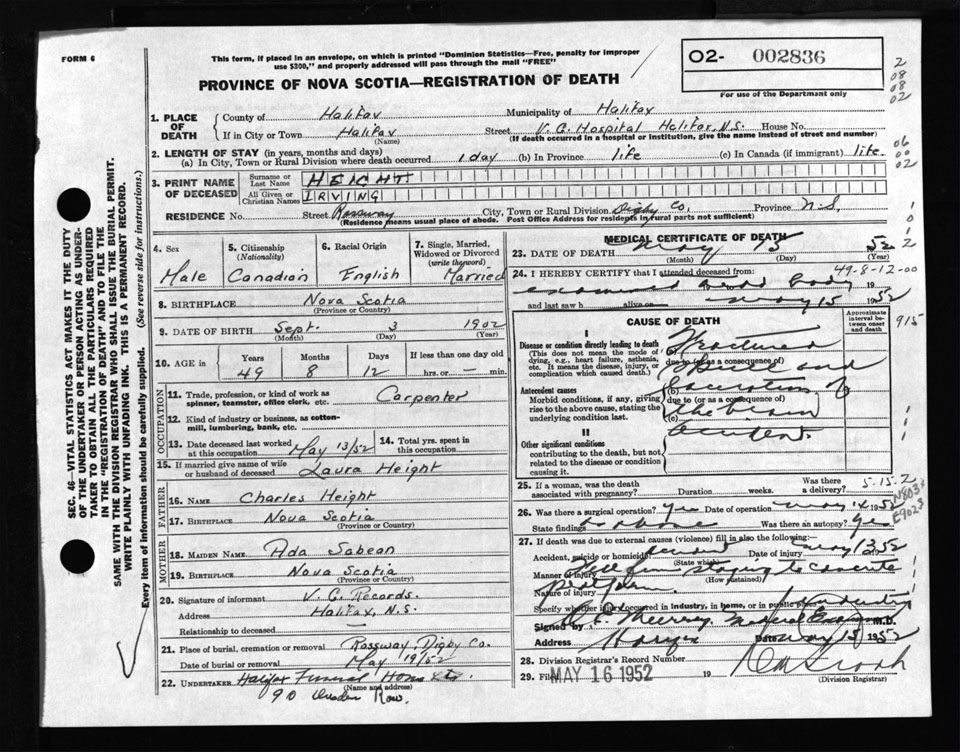 FORM 6
This form, if placed in an envelope, on which is printed "Dominion Statistics—Free, penalty for improper
use $300," and properly addressed will pass through the mail "FREE"
PROVINCE OF NOVA SCOTIA—REGISTRATION OF DEATH
02- 002836
For use of the Department only
2
08
08
02
06
00
02
SEC. 46—VITAL STATISTICS ACT MAKES IT THE DUTY
OF THE UNDERTAKER OR PERSON ACTING AS UNDER-
TAKER TO OBTAIN ALL THE PARTICULARS REQUIRED
IN THE "REGISTRATION OF DEATH" AND TO FILE THE
SAME WITH THE DIVISION REGISTRAR WHO SHALL ISSUE THE BURIAL PERMIT.
WRITE PLAINLY WITH UNFADING INK. THIS IS A PERMANENT RECORD.
Every item of information should be carefully supplied. (See reverse side for instructions.)
1. PLACE OF DEATH
County of Halifax Municipality of Halifax
If in City or Town Halifax Street V. G. Hospital Halifax, N.S. House No.
(Name) (If death occurred in a hospital or institution, give the name instead of street and number)
2. LENGTH OF STAY (in years, months and days)
(a) In City, Town or Rural Division where death occurred 1 day (b) In Province life (c) In Canada (if immigrant) life
3. PRINT NAME OF DECEASED
Surname or Last Name HEIGHT
All Given or Christian Names IRVING
RESIDENCE No. Street Rossway City, Town or Rural Division Digby Co. Province N.S.
(Residence means usual place of abode. Post Office Address for residents in rural parts not sufficient)
4. Sex Male
5. Citizenship (Nationality) Canadian
6. Racial Origin English
7. Single, Married, Widowed or Divorced (write the word) Married
8. BIRTHPLACE Nova Scotia
(Province or Country)
9. DATE OF BIRTH Sept. 3 1902
(Month) (Day) (Year)
10. AGE Years 49 Months 8 Days 12 If less than one day old hrs. or — min.
OCCUPATION
11. Trade, profession, or kind of work as spinner, teamster, office clerk, etc. Carpenter
12. Kind of industry or business, as cotton-mill, lumbering, bank, etc.
13. Date deceased last worked at this occupation May 13/52
14. Total yrs. spent in this occupation
15. If married give name of wife or husband of deceased Laura Height
FATHER
16. NAME Charles Height
17. BIRTHPLACE Nova Scotia
(Province or Country)
MOTHER
18. MAIDEN NAME Ada Sabean
19. BIRTHPLACE Nova Scotia
(Province or Country)
20. Signature of informant V. G. Records.
Address Halifax, N.S.
Relationship to deceased —
21. Place of burial, cremation or removal Rossway, Digby Co.
Date of burial or removal May 19/52
22. UNDERTAKER Halifax Funeral Home
(Name and address)
90 Row.
MEDICAL CERTIFICATE OF DEATH
23. DATE OF DEATH May 15 52
(Month) (Day)
24. I HEREBY CERTIFY that I attended deceased from: 49-8-12-00
examined dead body 19
and last saw h alive on May 15 1952
CAUSE OF DEATH
Approximate interval between onset and death
915
I
Disease or condition directly leading to death
(This does not mean the mode of dying, e.g., heart failure, asthenia, etc. It means the disease, injury, or complication which caused death.)
(a) Fractured
due to (or as a consequence of)
and
Antecedent causes
Morbid conditions, if any, giving rise to the above cause, stating the underlying condition last.
(b) laceration of
due to (or as a consequence of)
(c) the brain
II
Other significant conditions
contributing to the death, but not related to the disease or condition causing it.
accident.
25. If a woman, was the death associated with pregnancy? Duration weeks. Was there a delivery?
5.15.2
N803
E9023
26. Was there a surgical operation? Yes Date of operation May 14 1952
State findings as above Was there an autopsy? Yes
27. If death was due to external causes (violence) fill in also the following:
Accident, suicide or homicide? accident Date of injury May 13 52
(State which)
Manner of injury Fell from staging to concrete
(How sustained)
Nature of injury platform.
Specify whether injury occurred in industry, in home, or in public place Industry
Signed by Murray Medical Examiner M.D.
Address Halifax Date May 15 1952
28. Division Registrar's Record Number
29. Filed MAY 16 1952 19
(Division Registrar)